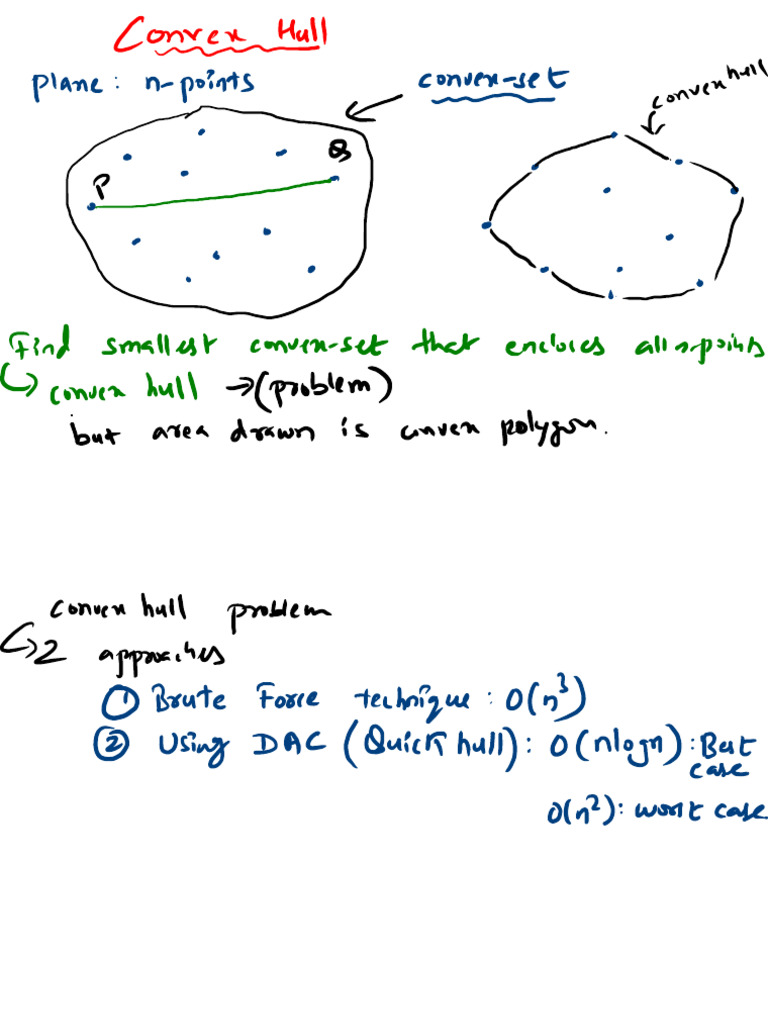 Convex Hull
plane: n-points
convex-set
convex hull
P
Q
Find smallest convex-set that encloses all n-points
convex hull → (problem)
but area drawn is convex polygon.
convex hull problem
2 approaches
① Brute Force technique: O(n³)
② Using DAC (Quick hull): O(nlogn): Best
case
O(n²): worst case